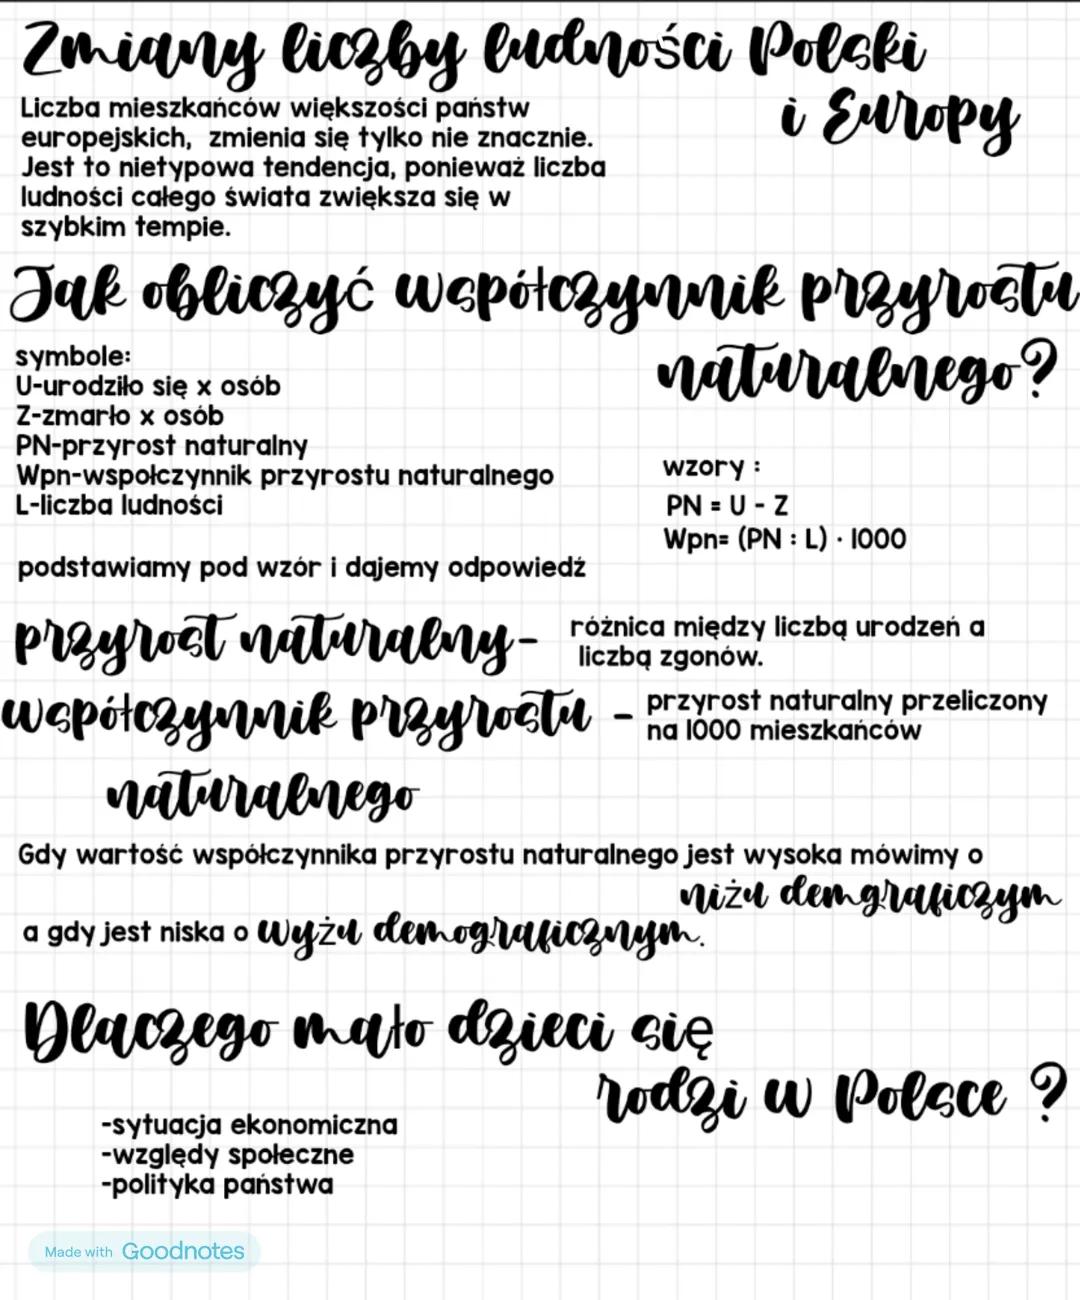 Zmiany liczby ludności Polski
i Europy
Liczba mieszkańców większości państw
europejskich, zmienia się tylko nie znacznie.
Jest to nietypowa tendencja, ponieważ liczba
ludności całego świata zwiększa się w
szybkim tempie.
Jak obliczyć współczynnik przyrostu
naturalnego?
symbole:
U-urodziło się x osób
Z-zmarło x osób
PN-przyrost naturalny
Wpn-wspołczynnik przyrostu naturalnego
L-liczba ludności
wzory :
PN = U - Z
Wpn= (PN : L) · 1000
podstawiamy pod wzór i dajemy odpowiedź
przyrost naturalny- różnica między liczbą urodzeń a
liczbą zgonów.
współczynnik przyrostu - przyrost naturalny przeliczony
na 1000 mieszkańców
naturalnego
Gdy wartość współczynnika przyrostu naturalnego jest wysoka mówimy o
niżu demgraficzym
a gdy jest niska o wyżu demograficznym.
Dlaczego mało dzieci się
rodzi w Polsce ?
-sytuacja ekonomiczna
-względy społeczne
-polityka państwa
Made with Goodnotes